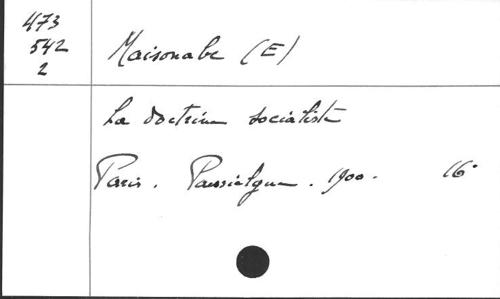 473
542
2
Maisonabe (E)
La doctrine socialiste
Paris. Poussielgue. 1900. 16°